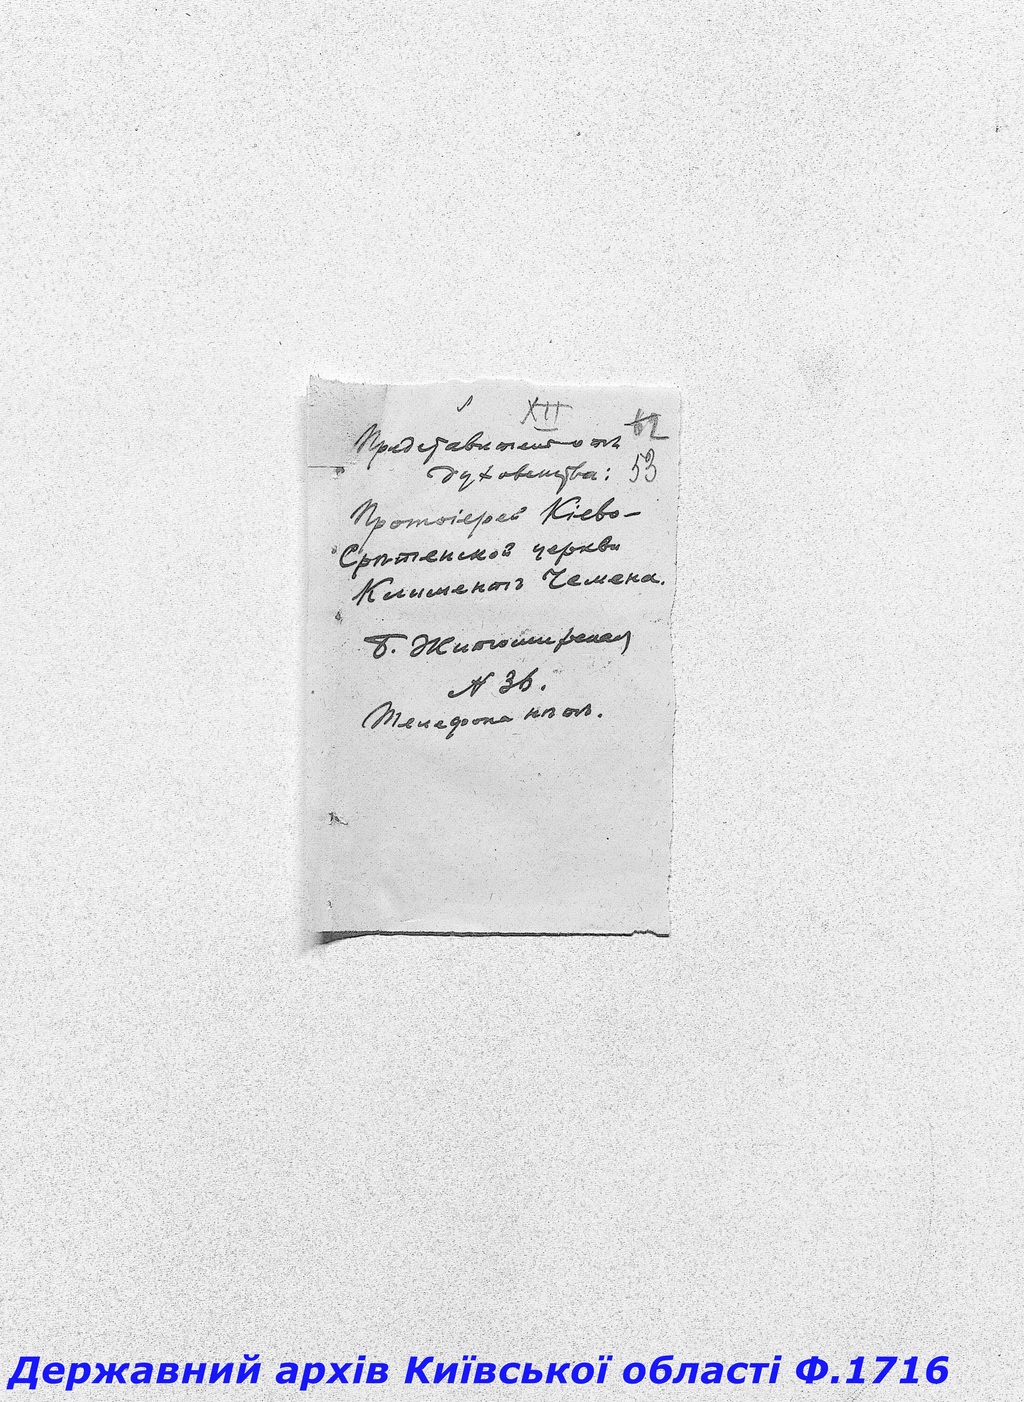 XII
62
Представитель отъ
духовенства:
53
Протоіерей Кіево-
Срѣтенской церкви
Климентъ Чемена.
Б. Житомирская
№ 36.
Телефона нѣтъ.
Державний архів Київської області Ф.1716